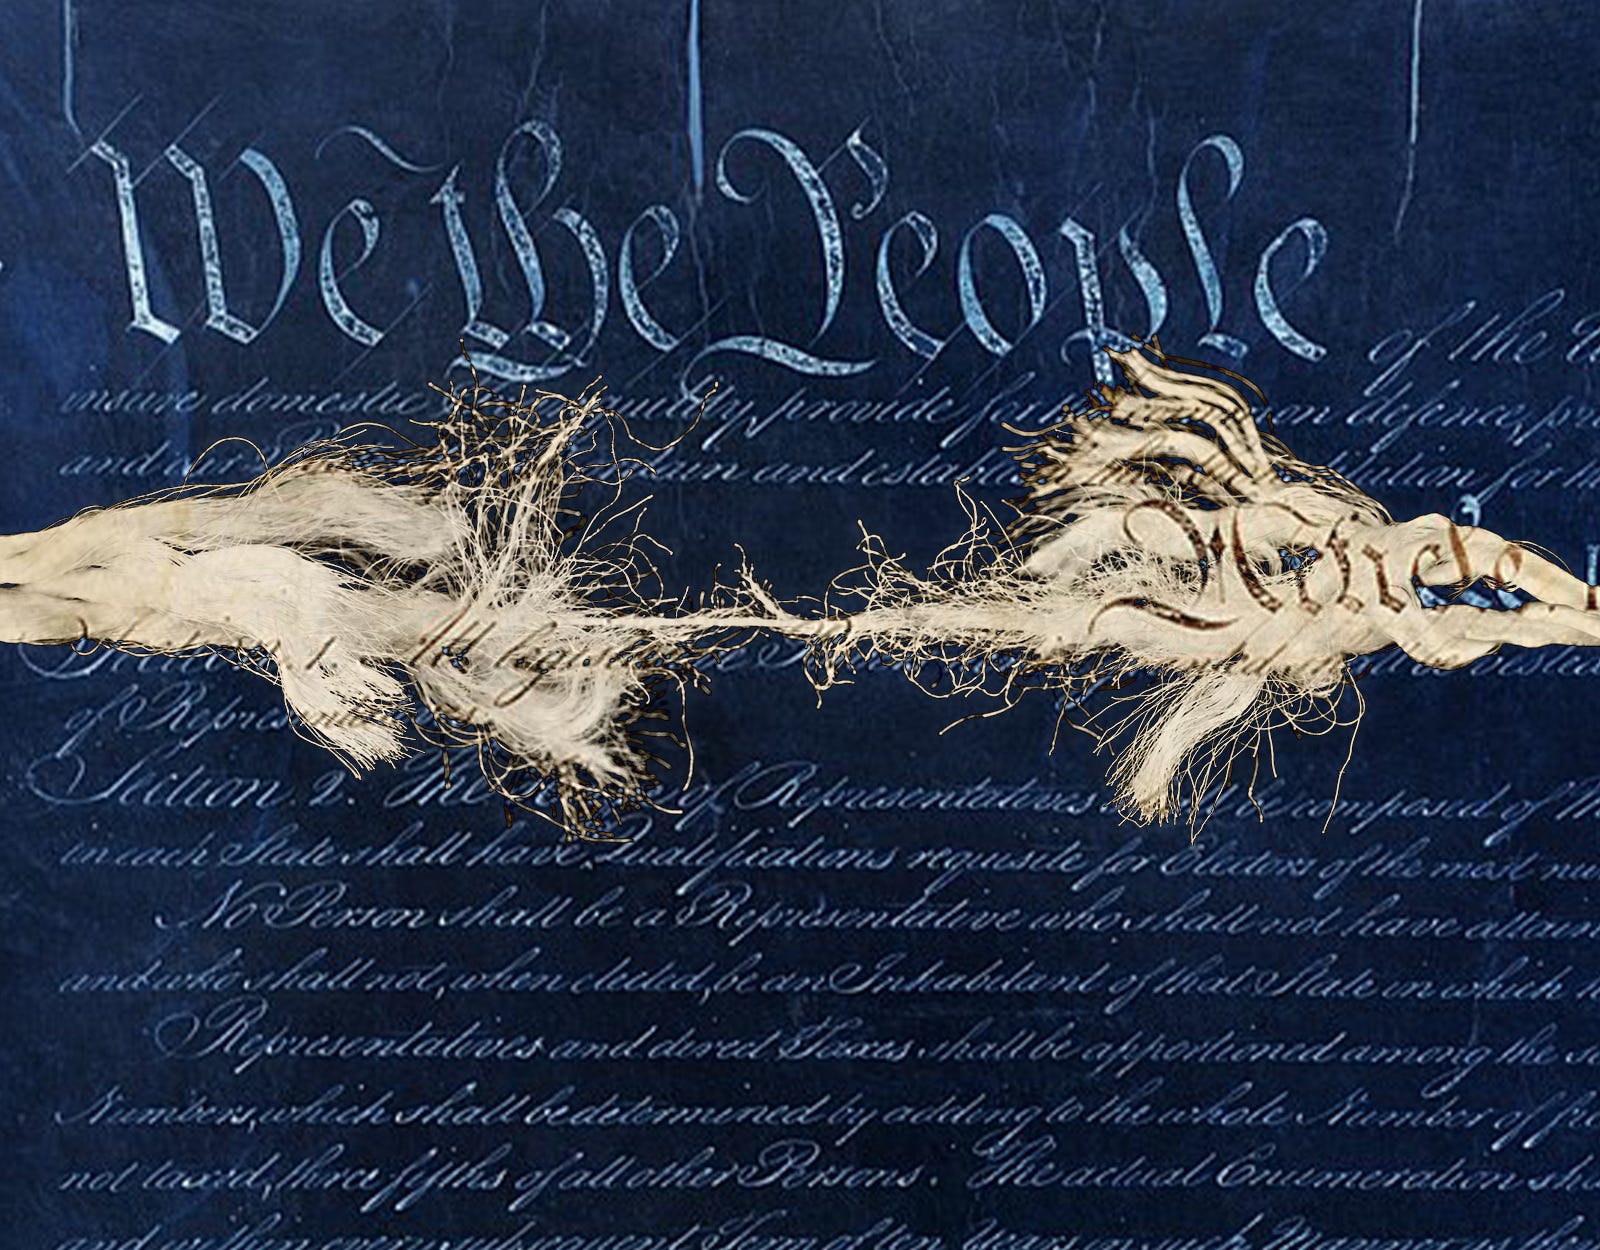 We the People of the
insure domestic provide for defence,
and our and establish for
Article
Section 1. All legis
of Repres
Section. 2. The of Representatives shall be composed of
in each State shall have Qualifications requisite for Electors of the most nu
No Person shall be a Representative who shall not have attain
and who shall not, when elected, be an Inhabitant of that State in which h
Representatives and direct Taxes shall be apportioned among the se
Numbers, which shall be determined by adding to the whole Number of fr
not taxed, three fifths of all other Persons. The actual Enumeration sha
and within every subsequent Term of ten Years, in such Manner as the